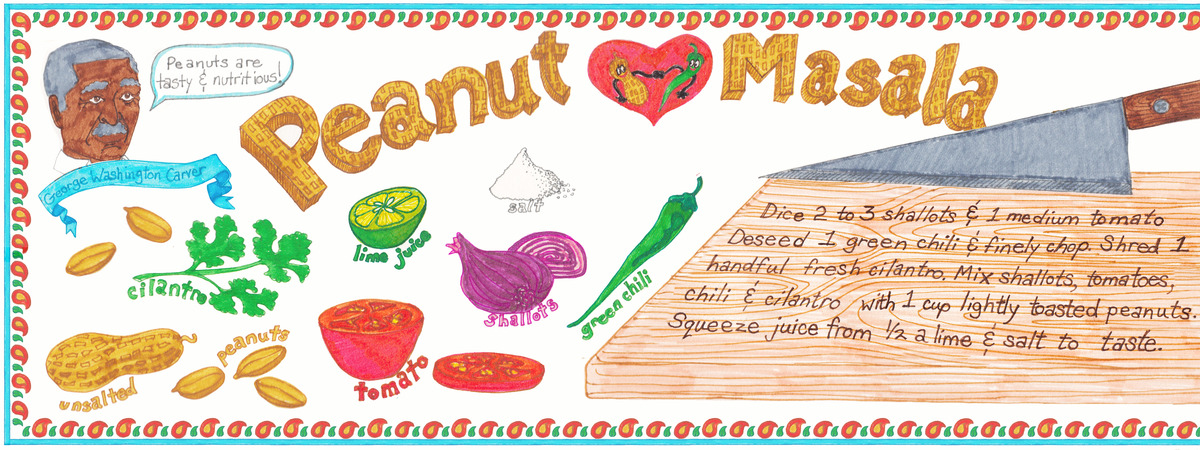 Peanut Masala
Peanuts are
tasty & nutritious!
George Washington Carver
salt
lime juice
cilantro
shallots
green chili
peanuts
unsalted
tomato
Dice 2 to 3 shallots & 1 medium tomato
Deseed 1 green chili & finely chop. Shred 1
handful fresh cilantro. Mix shallots, tomatoes,
chili & cilantro with 1 cup lightly toasted peanuts.
Squeeze juice from 1/2 a lime & salt to taste.